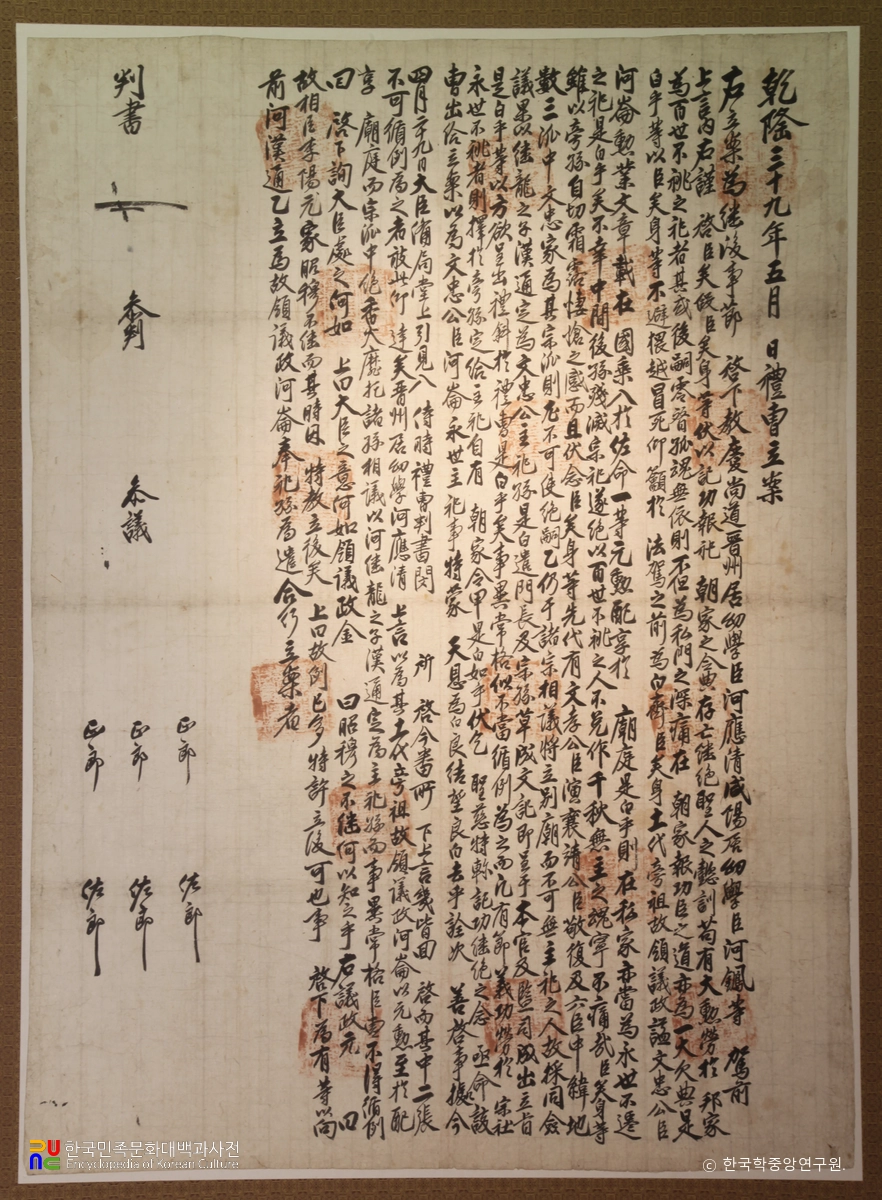 乾隆三十九年五月 日禮曹立案
右立案爲繼後事節 啓下敎慶尙道晋州居幼學臣河應清咸陽居幼學臣河鎭等 駕前
上言內右謹 啓臣矣段臣矣身等伏以記功報祀 朝家之令典存亡繼絶聖人之懿訓苟有大勳勞於邦家
爲百世不祧之祀者甚或後嗣零替孤魂無依則不但爲私門之深痛在 朝家報功臣之道亦爲一大欠典是
白乎等以臣矣身等不避猥越冒死仰籲於 法駕之前爲白齊臣矣身十一代旁祖故領議政諡文忠公臣
河崙勳業文章載在 國乘入於佐命一等元勳配享於 廟庭是白乎則在私家亦當爲永世不遷
之祀是白乎矣不幸中間後孫殘滅宗祀遂絶以百世不祧之人不免作千秋無主之魂寧不痛哉臣矣身等
雖以旁孫自切霜露悽愴之感而且伏念臣矣身等先代有文孝公臣演襄靖公臣敬復及六臣中緯地
數三派中文忠家爲其宗派則尤不可使絶嗣乙仍于諸宗相議將立別廟而不可無主祀之人故採同僉
議果以繼龍之子漢通定爲文忠公主祀孫是白遣門長及宗孫草成文記卽呈于本官及監司成出立旨
是白乎等以方欲呈出禮斜於禮曹是白乎矣事異常格似不當循例爲之而凡有節義功勞於 宗社
永世不祧者則擇於旁孫定給主祀自有 朝家令甲是白如乎伏乞 聖慈特軫記功繼絶之念 亟命該
曹出給立案以爲文忠公臣河崙永世主祀事特蒙 天恩爲白良結望良白去乎詮次 善啓事據今
四月二十九日大臣備局堂上引見入 侍時禮曹判書閔 所 啓今番所 下上言幾皆回 啓而其中二張
不可循例爲之者敢此仰達矣晋州居幼學河應清 上言以爲其十一代旁祖故領議政河崙以元勳至於配
享 廟庭而宗派中絶香火靡托諸孫相議以河繼龍之子漢通定爲主祀孫而事異常格臣曹不得循例
回 啓下詢大臣處之何如 上曰大臣之意何如領議政金 曰昭穆之不繼何以知之乎右議政元 曰
故相臣李陽元家昭穆不繼而其時因 特敎立後矣 上曰故例已多特許立後可也事 啓下爲有等以向
前河漢通乙立爲故領議政河崙奉祀孫爲遣合行立案者
判書
參判
參議
正郎
正郎
正郎
佐郎
佐郎
佐郎
한국민족문화대백과사전
Encyclopedia of Korean Culture
© 한국학중앙연구원.